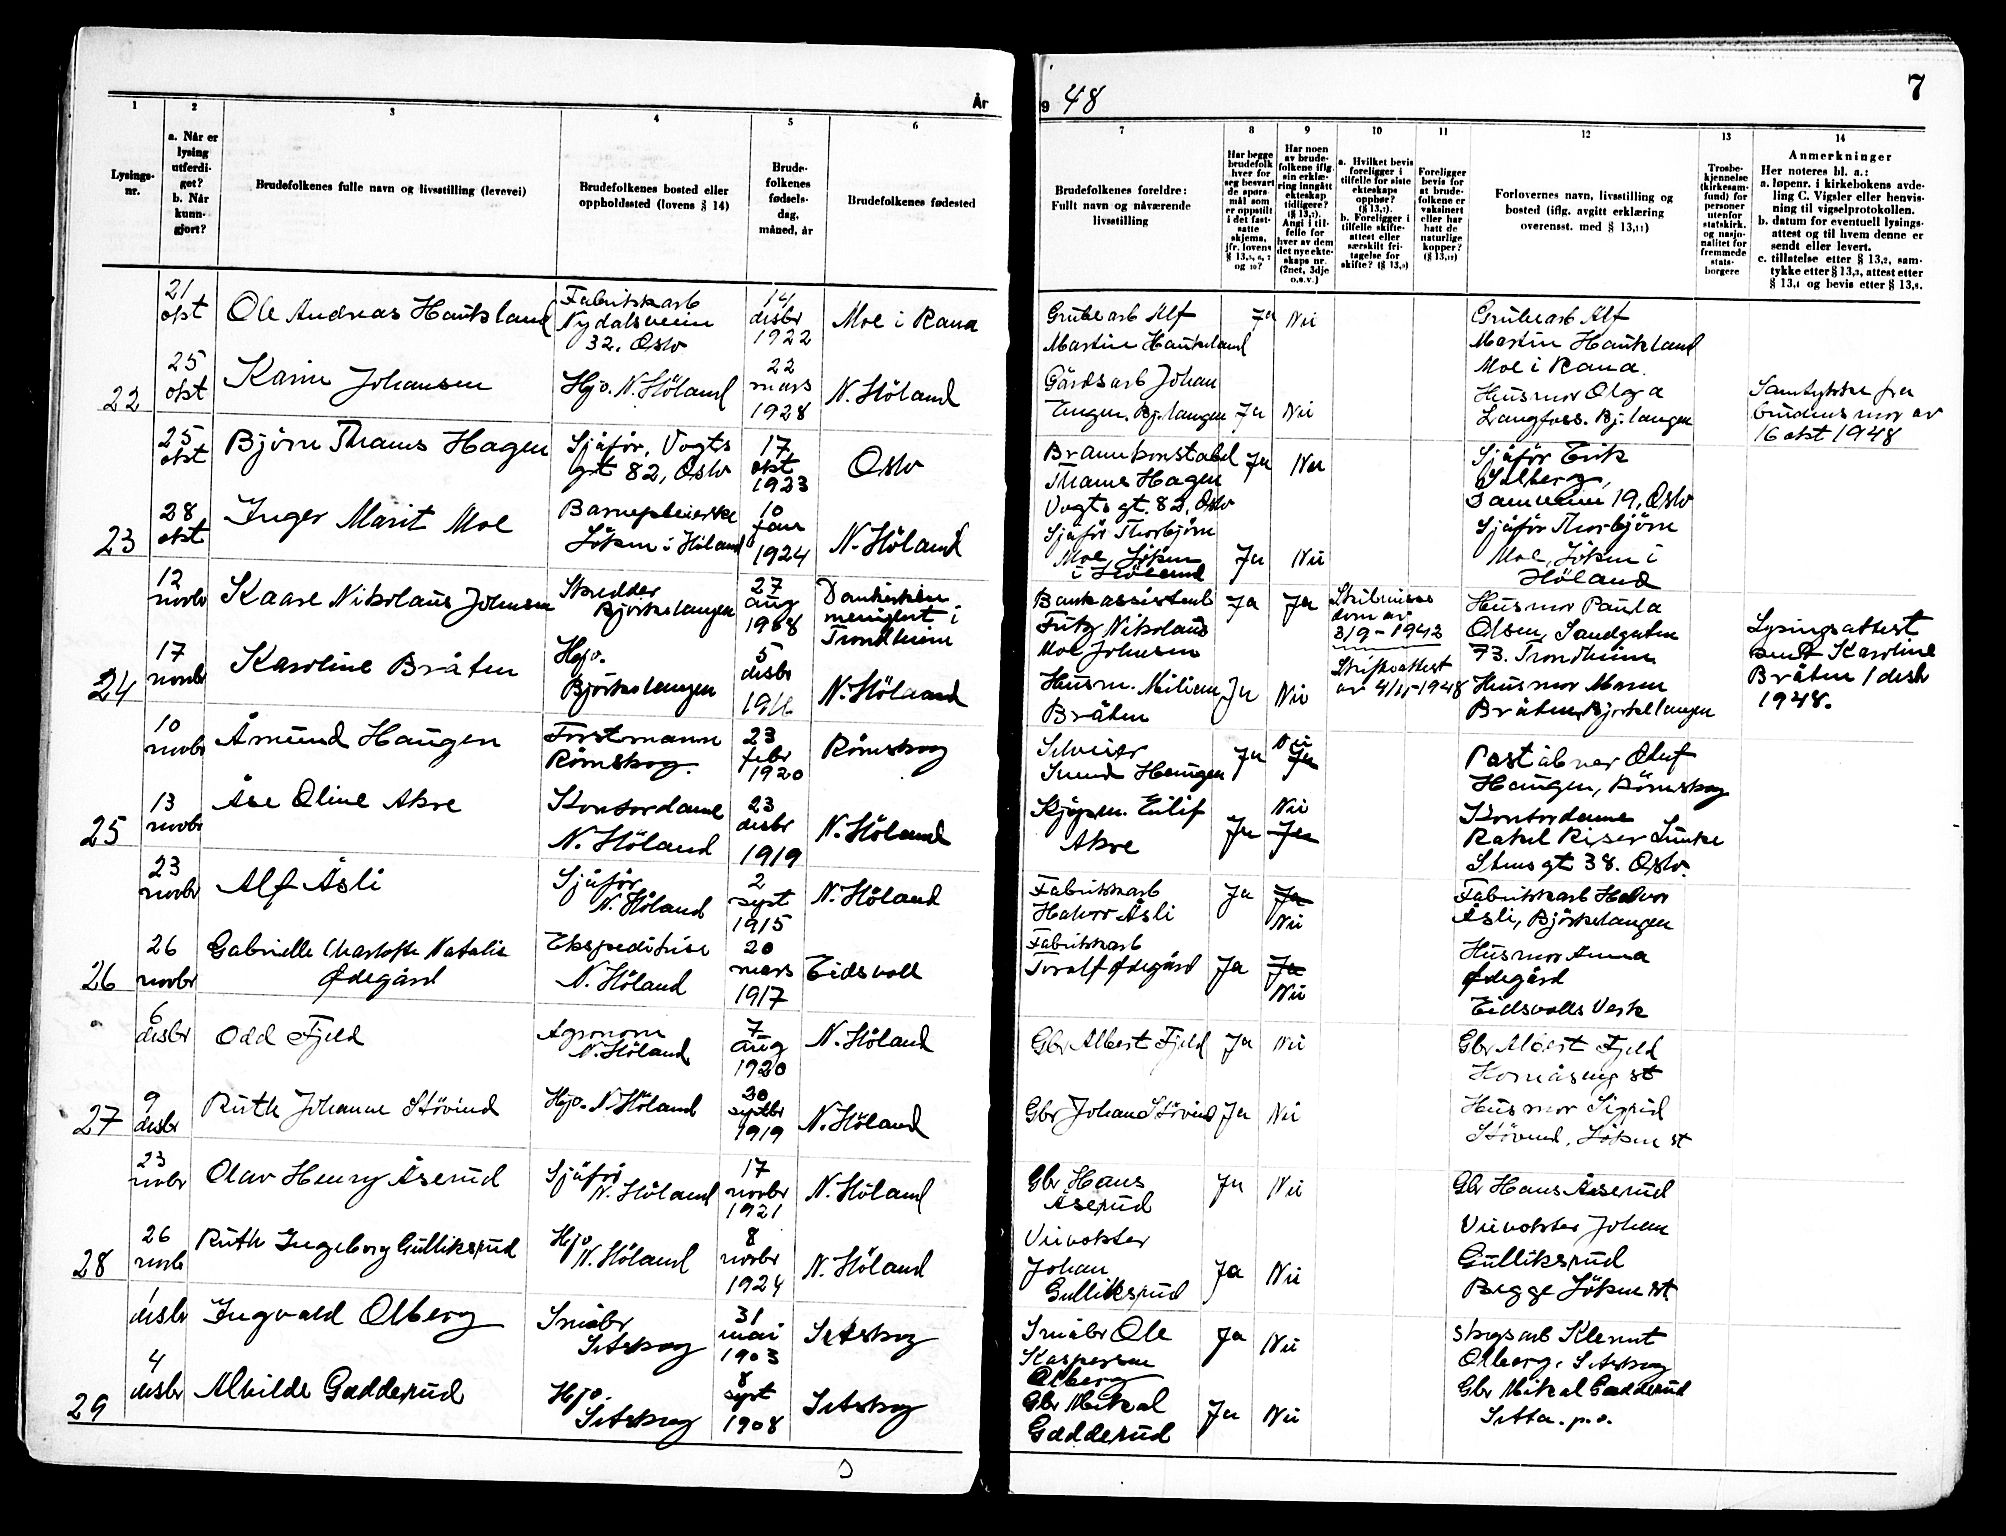 År 19 48
7
1
2
3
4
5
6
7
8
9
10
11
12
13
14
Lysings-
nr.
a. Når er
lysing
utferdi-
get?
b. Når
kunn-
gjort?
Brudefolkenes fulle navn og livsstilling (levevei)
Brudefolkenes bosted eller
oppholdssted (lovens § 14)
Brude-
folkenes
fødsels-
dag,
måned, år
Brudefolkenes fødested
Brudefolkenes foreldre:
Fullt navn og nåværende
livsstilling
Har begge
brudefolk
hver for
seg besvart
de spørs-
mål som
er oppstilt
i det fast-
satte
skjema,
jfr. lovens
og 10?
Har noen
av brude-
folkene iflg.
sin erklæ-
ring inngått
ekteskap
tidligere?
Angi i til-
felle for
hver av dem
det nye ekte-
skaps nr.
(2net, 3dje
o.s.v.)
a. Hvilket bevis
foreligger i
tilfelle for siste
ekteskaps
opphør?
b. Foreligger i
tilfelle skifte-
attest eller
særskilt fri-
tagelse for
skifte?
Foreligger
bevis for
at brude-
folkene er
vaksinert
eller har
hatt de
naturlige
kopper?
Forlovernes navn, livsstilling og
bosted (iflg. avgitt erklæring
overensst. med § 13,11)
Trosbe-
kjennelse
(kirkesam-
fund) for
personer
utenfor
statskirk.
og nasjo-
nalitet for
fremmede
stats-
borgere
Anmerkninger
Her noteres bl. a.:
a. løpenr. i kirkebokens avde-
ling C. Vigsler eller henvis-
ning til vigselprotokollen.
b. datum for eventuell lysings-
attest og til hvem denne er
sendt eller levert.
c. tillatelse etter § 13,2, sam-
tykke etter § 13,3, attest etter
§ 13,4 og bevis etter § 13,8.
21
okt
Ole Andreas Haukeland
Fabrikkarb
Nydalsveien
32, Oslo
14
desbr
1922
Moe i Rana
Grubearb Alf
Martin Haukeland
Ja
Nei
Grubearb Alf
Martin Haukeland
Moe i Rana.
22
25
okt
Karin Johansen
Hjv. N. Höland
22
mars
1928
N. Höland
Gårdsarb Johan
Engen. Bj.langen
Ja
Nei
Husmor Olga
Langfoss. Bj.langen
Samtykke fra
brudens mor av
16 okt 1948
25
okt
Björn Thams Hagen
Sjåför, Vogts
gt 82, Oslo
17
okt
1923
Oslo
Brannkonstabel
Thams Hagen
Vogts gt. 82, Oslo
Ja
Nei
Sjåför Erik
19, Oslo
23
28
okt
Inger Marit Moe
Barnepleierske
Löken i Höland
10
jan
1924
N. Höland
Sjåför Thorbjörn
Moe, Löken
i Höland
Ja
Nei
Sjåför Thorbjörn
Moe, Löken i
Höland
12
novbr
Kaare Nikolaus Johnsen
Skredder
Björkelangen
27
aug
1908
menighet i
Trondheim
Bankassistent
Fritz Nikolaus
Moe Johnsen
Ja
Ja
Skilsmisse
dom av
3/9-1942
Husmor Paula
Olsen, Sandgaten
73. Trondheim
Lysingsattest
sendt Karoline
Bråten 1 desbr
1948.
24
17
novbr
Karoline Bråten
Hjv.
Björkelangen
5
desbr
N. Höland
Husm. Milian
Bråten
Ja
Nei
Skifteattest
av 4/11-1948
Husmor Maren
Bråten, Bjørkelangen
10
novbr
Åmund Haugen
Forstmann
Römskog.
23
febr
1920
Römskog
Selveier
Haugen
Ja
Nei
Ja
Poståbner Oluf
Haugen, Römskog
25
13
novbr
Åse Oline Akre
Kontordame
N. Höland
23
desbr
1919
N. Höland
Kjöpm. Eilif
Akre
Ja
Nei
Ja
Kontordame
Rakel Riser Lunke
Stensgt 38. Oslo.
23
novbr
Alf Åsli
Sjåför
N. Höland
2
sept
1915
N. Höland
Fabrikkarb
Halvor Åsli
Ja
Ja
Nei
Fabrikkarb Halvor
Åsli, Björkelangen
26
26
novbr
Gabrielle Charlotte Natalie
Ødegård
Ekspeditrise
N. Höland
20
mars
1917
Eidsvoll
Fabrikkarb
Toralf Ødegård
Ja
Ja
Nei
Husmor Anna
Ødegård
Eidsvolls Verk
6
desbr
Odd Fjeld
Agronom
N. Höland
7
aug
1920
N. Höland
Gbr Albert Fjeld
Ja
Nei
Gbr Albert Fjeld
Komåseng st
27
9
desbr
Ruth Johanne Stövind
Hjv. N. Höland
septbr
1919
N. Höland
Gbr Johan Stövind
Ja
Nei
Husmor Sigrid
Stövind, Löken st
23
novbr
Olav Henry Åserud
Sjåför
N. Höland
17
novbr
1921
N. Höland
Gbr Hans
Åserud
Ja
Nei
Gbr Hans Åserud
28
26
novb
Ruth Ingeborg Gulliksrud
Hjv
N. Höland
8
novbr
1924
N. Höland
Veivokter
Johan
Gulliksrud
Ja
Nei
Veivokter Johan
Gulliksrud
Begge Löken st.
1
desbr
Ingvald Olberg
Småbr
Setskog
31
mai
1903
Setskog
Småbr Ole
Kaspersen
Olberg
Ja
Nei
Skogsarb Klemet
Olberg, Setskog
29
4
desbr
Alhilde Gadderud
Hjv.
Setskog
8
sept
1908
Setskog
Gbr Mikal
Gadderud
Ja
Nei
Gbr Mikal Gadderud
Setta. p.o.